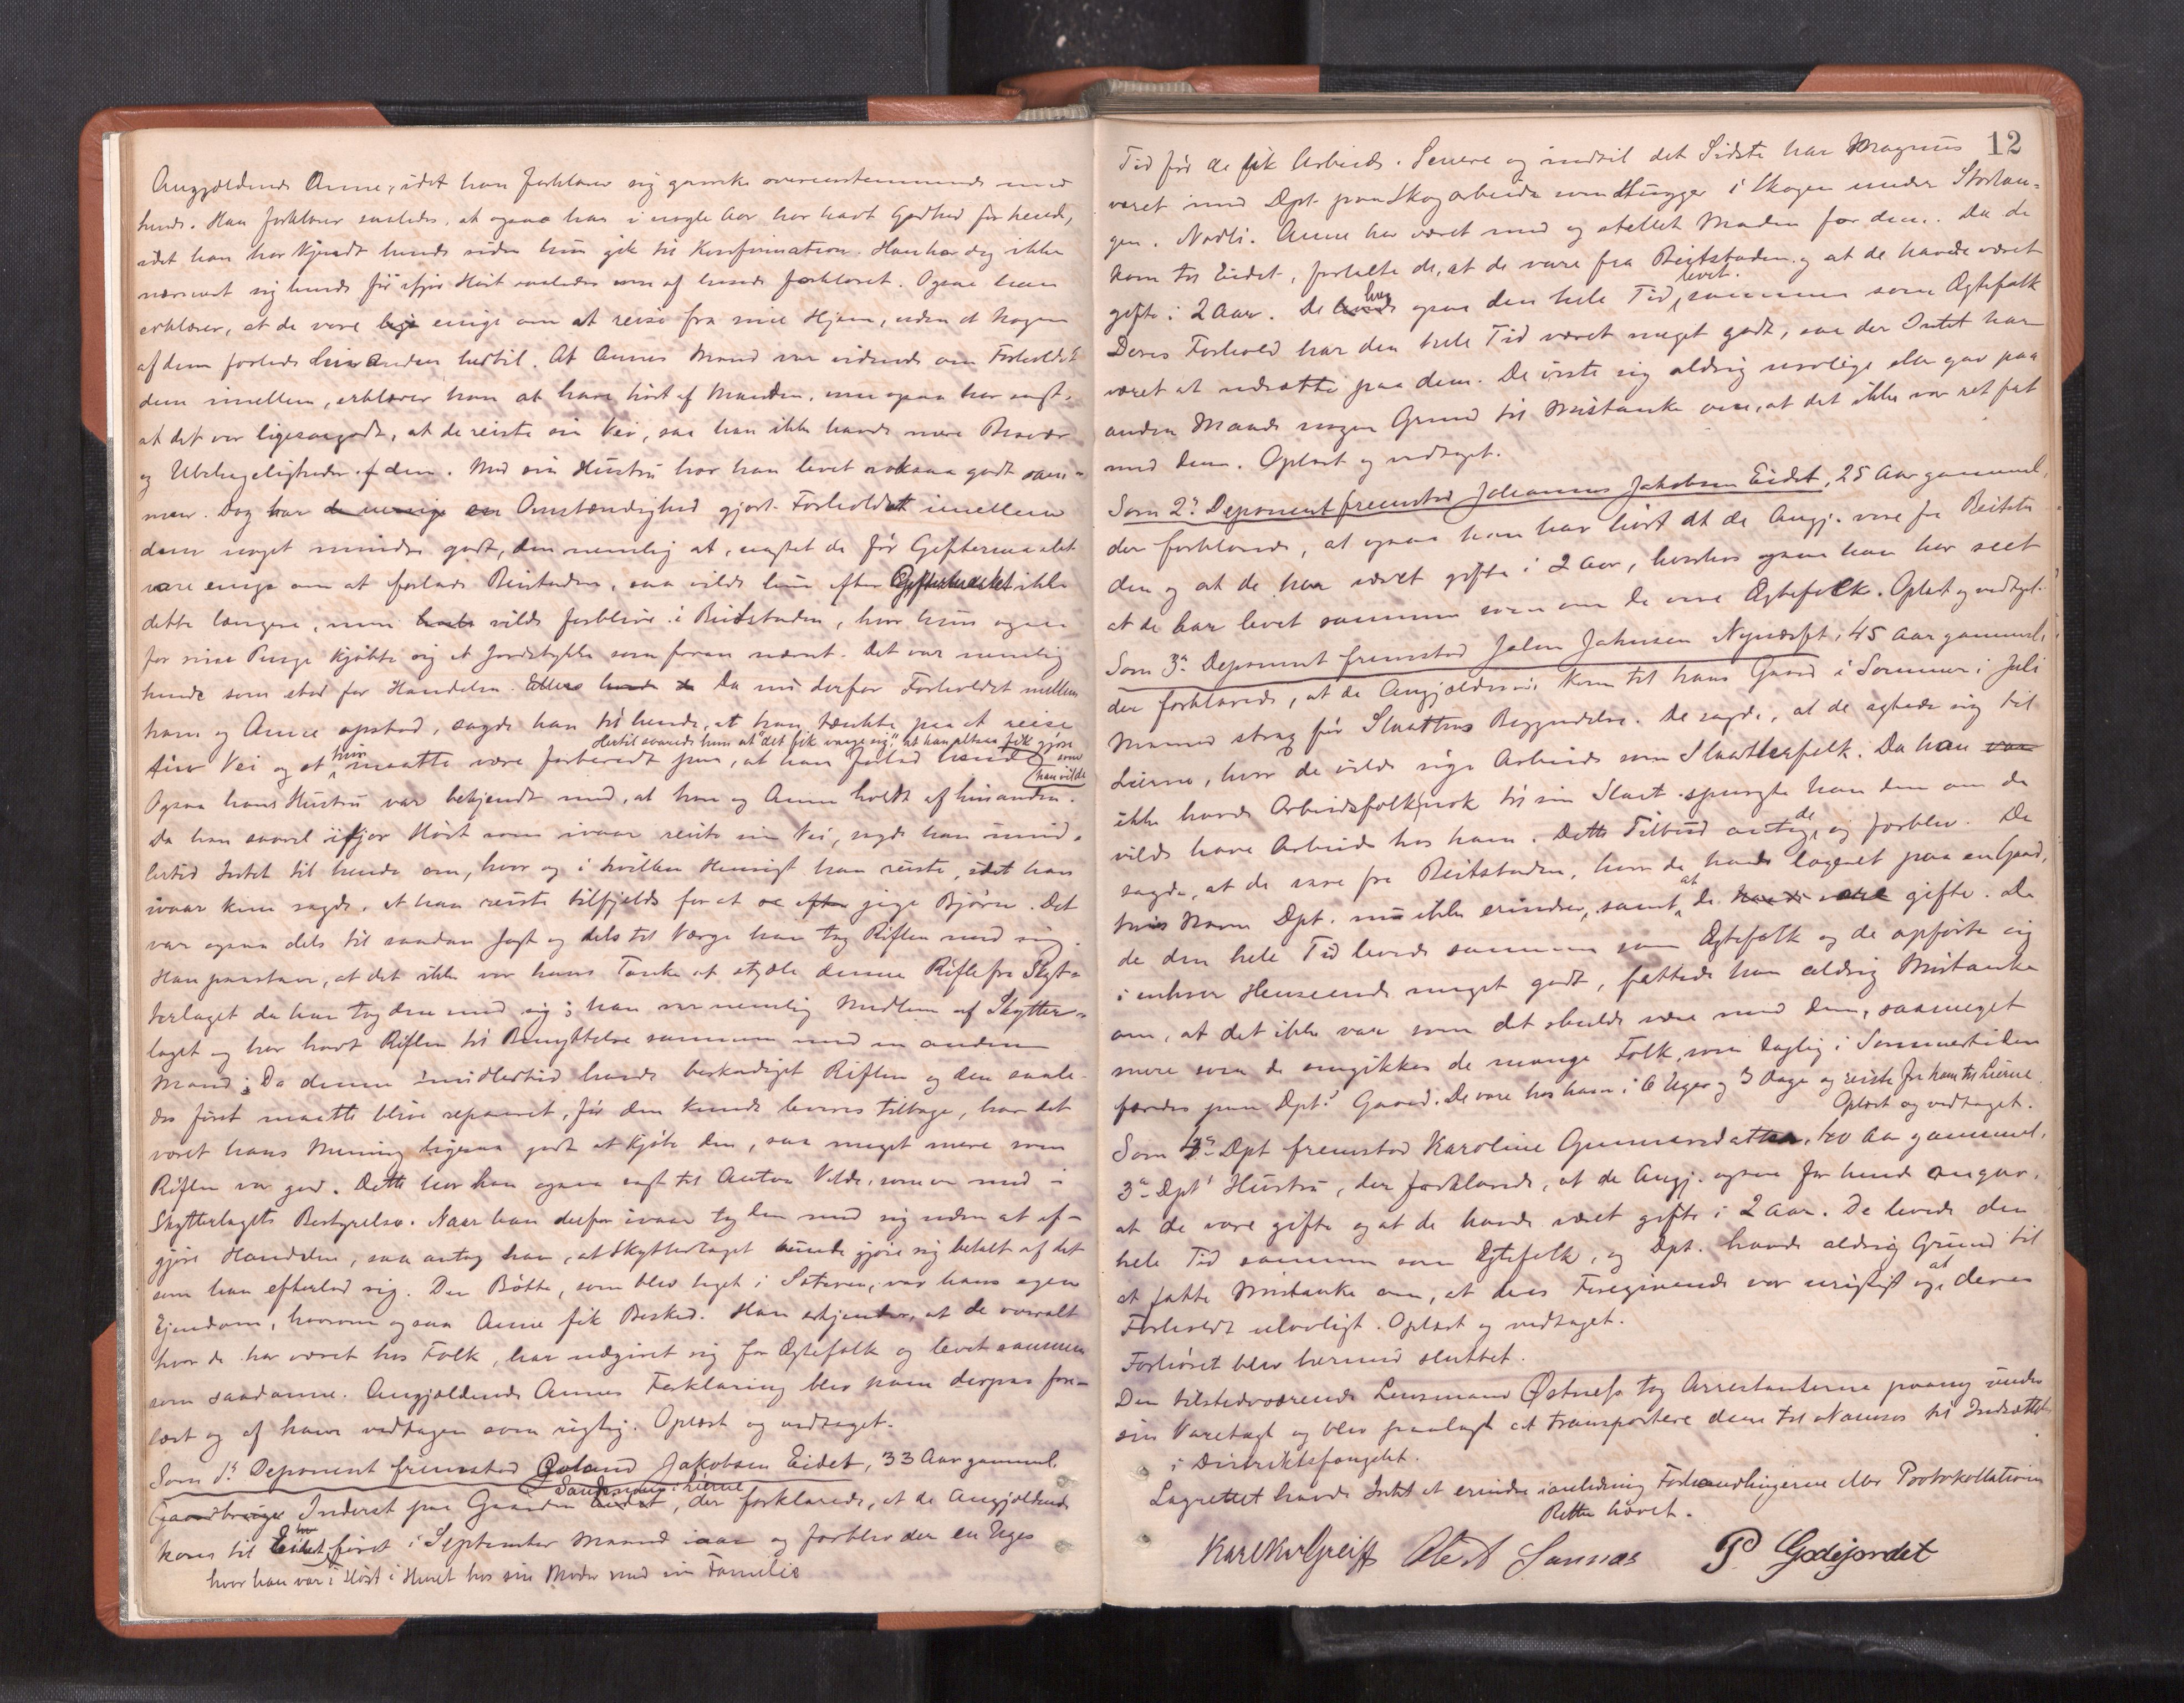 Angjældende Anne, idet han forklarer sig ganske overensstemmende med
hende. Han forklarer saaledes, at ogsaa han i nogle Aar har havt Godhed for hende,
idet han har kjendt hende siden hun gik til Konfirmation. Han har dog ikke
nærmet sig hende før ifjor Høst saaledes som af hende forklaret. Ogsaa han
erklærer, at de vare lige enige om at reise fra sine Hjem, uden at Nogen
af dem forledte hinanden hertil. At Annes Mand var vidende om Forholdet
dem imellem, erklærer han at have hørt af Manden, som ogsaa har sagt,
at det var ligesaagodt, at de reiste sin Vei, saa han ikke havde mere Besvær
og Ubehageligheder af dem. Med sin Hustru har han levet nokaa godt sam-
men. Dog har de uenige en Omstændighed gjort Forholdet imellem
dem noget mindre godt, den nemlig at, uagtet de før Giftermaalet
vare enige om at forlade Beitstaden, saa vilde hun efter Giftermaalet ikke
dette længere, men vilde forblive i Beitstaden, hvor hun ogsaa
for sine Penge kjøbte sig et Jordstykke som foran nævnt. Det var nemlig
hende som stod for Handelen. Ellers Da nu derfor Forholdet mellem
ham og Anne opstod, sagde han til hende, at han tænkte paa at reise
Hertil svarede hun at "det fik vaage sig", at han altsaa fik gjøre
sin Vei og at hun maatte være forberedt paa, at han forlod hende som
han vilde
Ogsaa hans Hustru var bekjendt med, at han og Anne holdt af hinanden.
Da han saavel ifjor Høst som ivaar reiste sin Vei, sagde han imid-
lertid Intet til hende om, hvor og i hvilken Hensigt han reiste, idet han
ivaar kun sagde, at han reiste tilfjelds for at se efter jage Bjørn. Det
var ogsaa dels til saadan Jagt og dels til Værge han tog Riflen med sig.
Han paastaar, at det ikke var hans Tanke at stjæle denne Rifle fra Skyt-
terlaget da han tog den med sig; han var nemlig Medlem af Skytter-
laget og har havt Riflen til Benyttelse sammen med en anden
Mand; Da denne imidlertid havde beskadiget Riflen og den saale-
des først maatte blive repareret, før den kunde leveres tilbage, har det
været hans Mening ligesaa godt at kjøbe den, saa meget mere som
Riflen var god. Dette har han ogsaa sagt til Anton Velde, som er med i
Skytterlagets Bestyrelse. Naar han derfor ivaar tog den med sig uden at af-
gjøre Handelen, saa antog han, at Skytterlaget kunde gjøre sig betalt af det
som han efterlod sig. Den Bøtte, som blev taget i Sæteren, var hans egen
Ejendom, hvorom ogsaa Anne fik Besked. Han erkjender, at de overalt
hvor de har været hos Folk, har udgivet sig for Ægtefolk og levet sammen
som saadanne. Angjældende Annes Forklaring blev ham derpaa fore-
læst og af ham vedtagen som rigtig. Oplæst og vedtaget.
Som 1ste Deponent fremstod Roland Jakobsen Eidet, 33 Aar gammel
Sandsmoen i Lierne
Gaardbruger Inderst paa Gaarden Eidet, der forklarede, at de Angjældende
kom til Eidet, først i September Maaned iaar og forblev der en Uges
hvor han var i Høst i Huset hos sin Moder med sin Familie
12
Tid før de fik Arbeide. Senere og indtil det Sidste har Magnus
været med Dpt. paa Skogarbeide som Hugger i Skogen under Stortan-
gen. Nordli. Anne har været med og stellet Maden for dem. Da de
kom til Eidet, fortalte de, at de vare fra Beitstaden og at de havde været
gifte i 2 Aar. De har ogsaa den hele Tid levet sammen som Ægtefolk
Deres Forhold har den hele Tid været meget godt, saa der Intet har
været at udsætte paa dem. De viste sig aldrig urolige eller gav paa
anden Maade nogen Grund til Mistanke om, at det ikke var ret fat
med dem. Oplæst og vedtaget.
Som 2den Deponent fremstod Johannes Jakobsen Eidet, 25 Aar gammel,
der forklarede, at ogsaa han har hørt at de Angj. vare fra Beitsta-
den og at de har været gifte i 2 Aar, hvorhos ogsaa han har seet
at de har levet sammen som om de vare Ægtefolk. Oplæst og vedtaget.
Som 3die Deponent fremstod John Johnsen Nynæsset, 45 Aar gammel,
der forklarede, at de Angjældende kom til hans Gaard i Sommer i Juli
Maaned strax før Slaattens Begyndelse. De sagde, at de agtede sig til
Lierne, hvor de vilde søge Arbeide som Slaattefolk. Da han var
ikke havde Arbeidsfolk nok til sin Slaat spurgte han dem om de
vilde have Arbeide hos ham. Dette Tilbud antog de og forblev. De
sagde, at de vare fra Beitstaden, hvor de havde lageret paa en Gaard,
hvis Navn Dpt. nu ikke erindrer, samt at de havde vare gifte. Da
de den hele Tid levede sammen som Ægtefolk og de opførte sig
i enhver Henseende meget godt, fattede han aldrig Mistanke
om, at det ikke var som det skulde være med dem, saameget
mere som de omgikkes de mange Folk, som daglig i Sommertiden
færdes paa Dpts Gaard. De vare hos ham i 6 Uger og 3 Dage og reiste fra ham til Lierne.
Oplæst og vedtaget.
Som 4de Dpt fremstod Karoline Gunnarsdatter, 40 Aar gammel,
3die Dpts Hustru, der forklarede, at de Angj. ogsaa for hende angav,
at de vare gifte og at de havde været gifte i 2 Aar. De levede den
hele Tid sammen som Ægtefolk, og Dpt. havde aldrig Grund til
at fatte Mistanke om, at deres Foregivende var urigtigt og at deres
Forhold ulovligt. Oplæst og vedtaget.
Forhøret blev hermed sluttet.
Den tilstedværende Lensmand Østnæss tog Arrestanterne paany under
sin Varetægt og blev paalagt at transportere dem til Namsos til Indsættelse
i Distriktsfængslet.
Lagrettet havde Intet at erindre i anledning Forhandlingerne eller Protokollationen
Retten hævet.
Karl Kr Greiff Sannæs P Godejordet